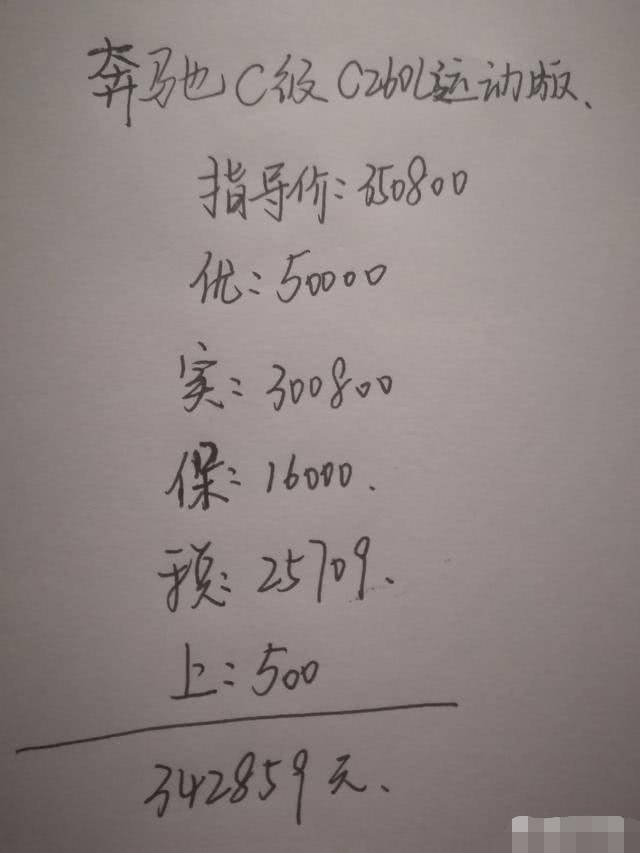 奔驰C级C260L运动版、
指导价:350800
优:50000
实:300800
保:16000.
税:25709、
上:500
342859元、